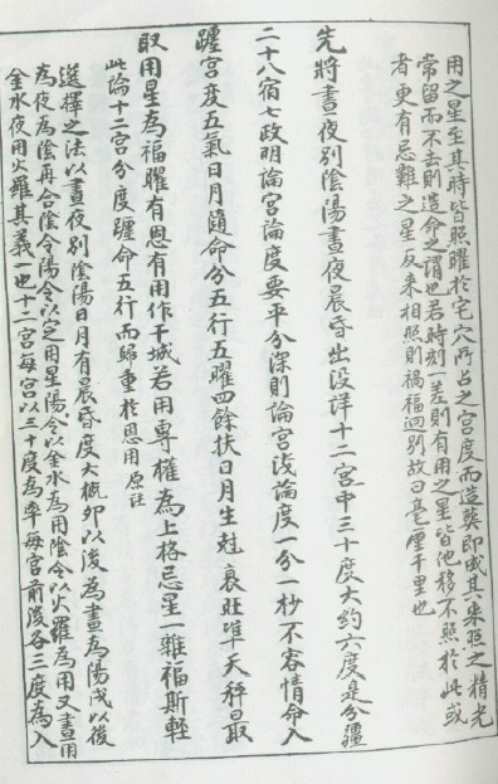 用之星至其時皆照曜於宅穴所占之宮度而造葬即感其來照之精光
常留而不去則造命之謂也若時刻一差則有用之星皆池移不照於此或
者更有忌難之星反来相照則禍福迥別故曰毫厘千里也
先將晝夜別陰陽晝夜晨昏出没詳十二宮中三十度大約六度是分疆
二十八宿七政明論宮論度要平分深則論宮浅論度一分一秒不容情命入
躔宮度五氣日月隨命分五行五曜四餘扶日月生尅衰旺準天秤最
取用星為福曜有恩有用作干城若用專權為上格忌星一雜福斯輕
此論十二宮分度躔命五行而歸重於恩用原註
選擇之法以晝夜別陰陽日月有晨昏度大概卯以後為晝為陽戌以後
為夜為陰再合陰令陽令以定用星陽令以金水為用陰令以火羅為用又晝用
金水夜用火羅其義一也十二宮每宮以三十度為率每宮前後各三度為入